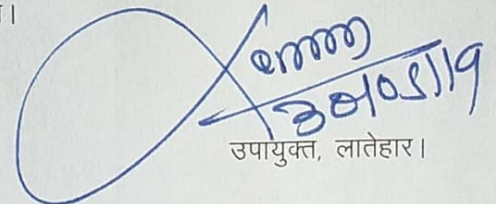 ।
30/05/19
उपायुक्त, लातेहार।